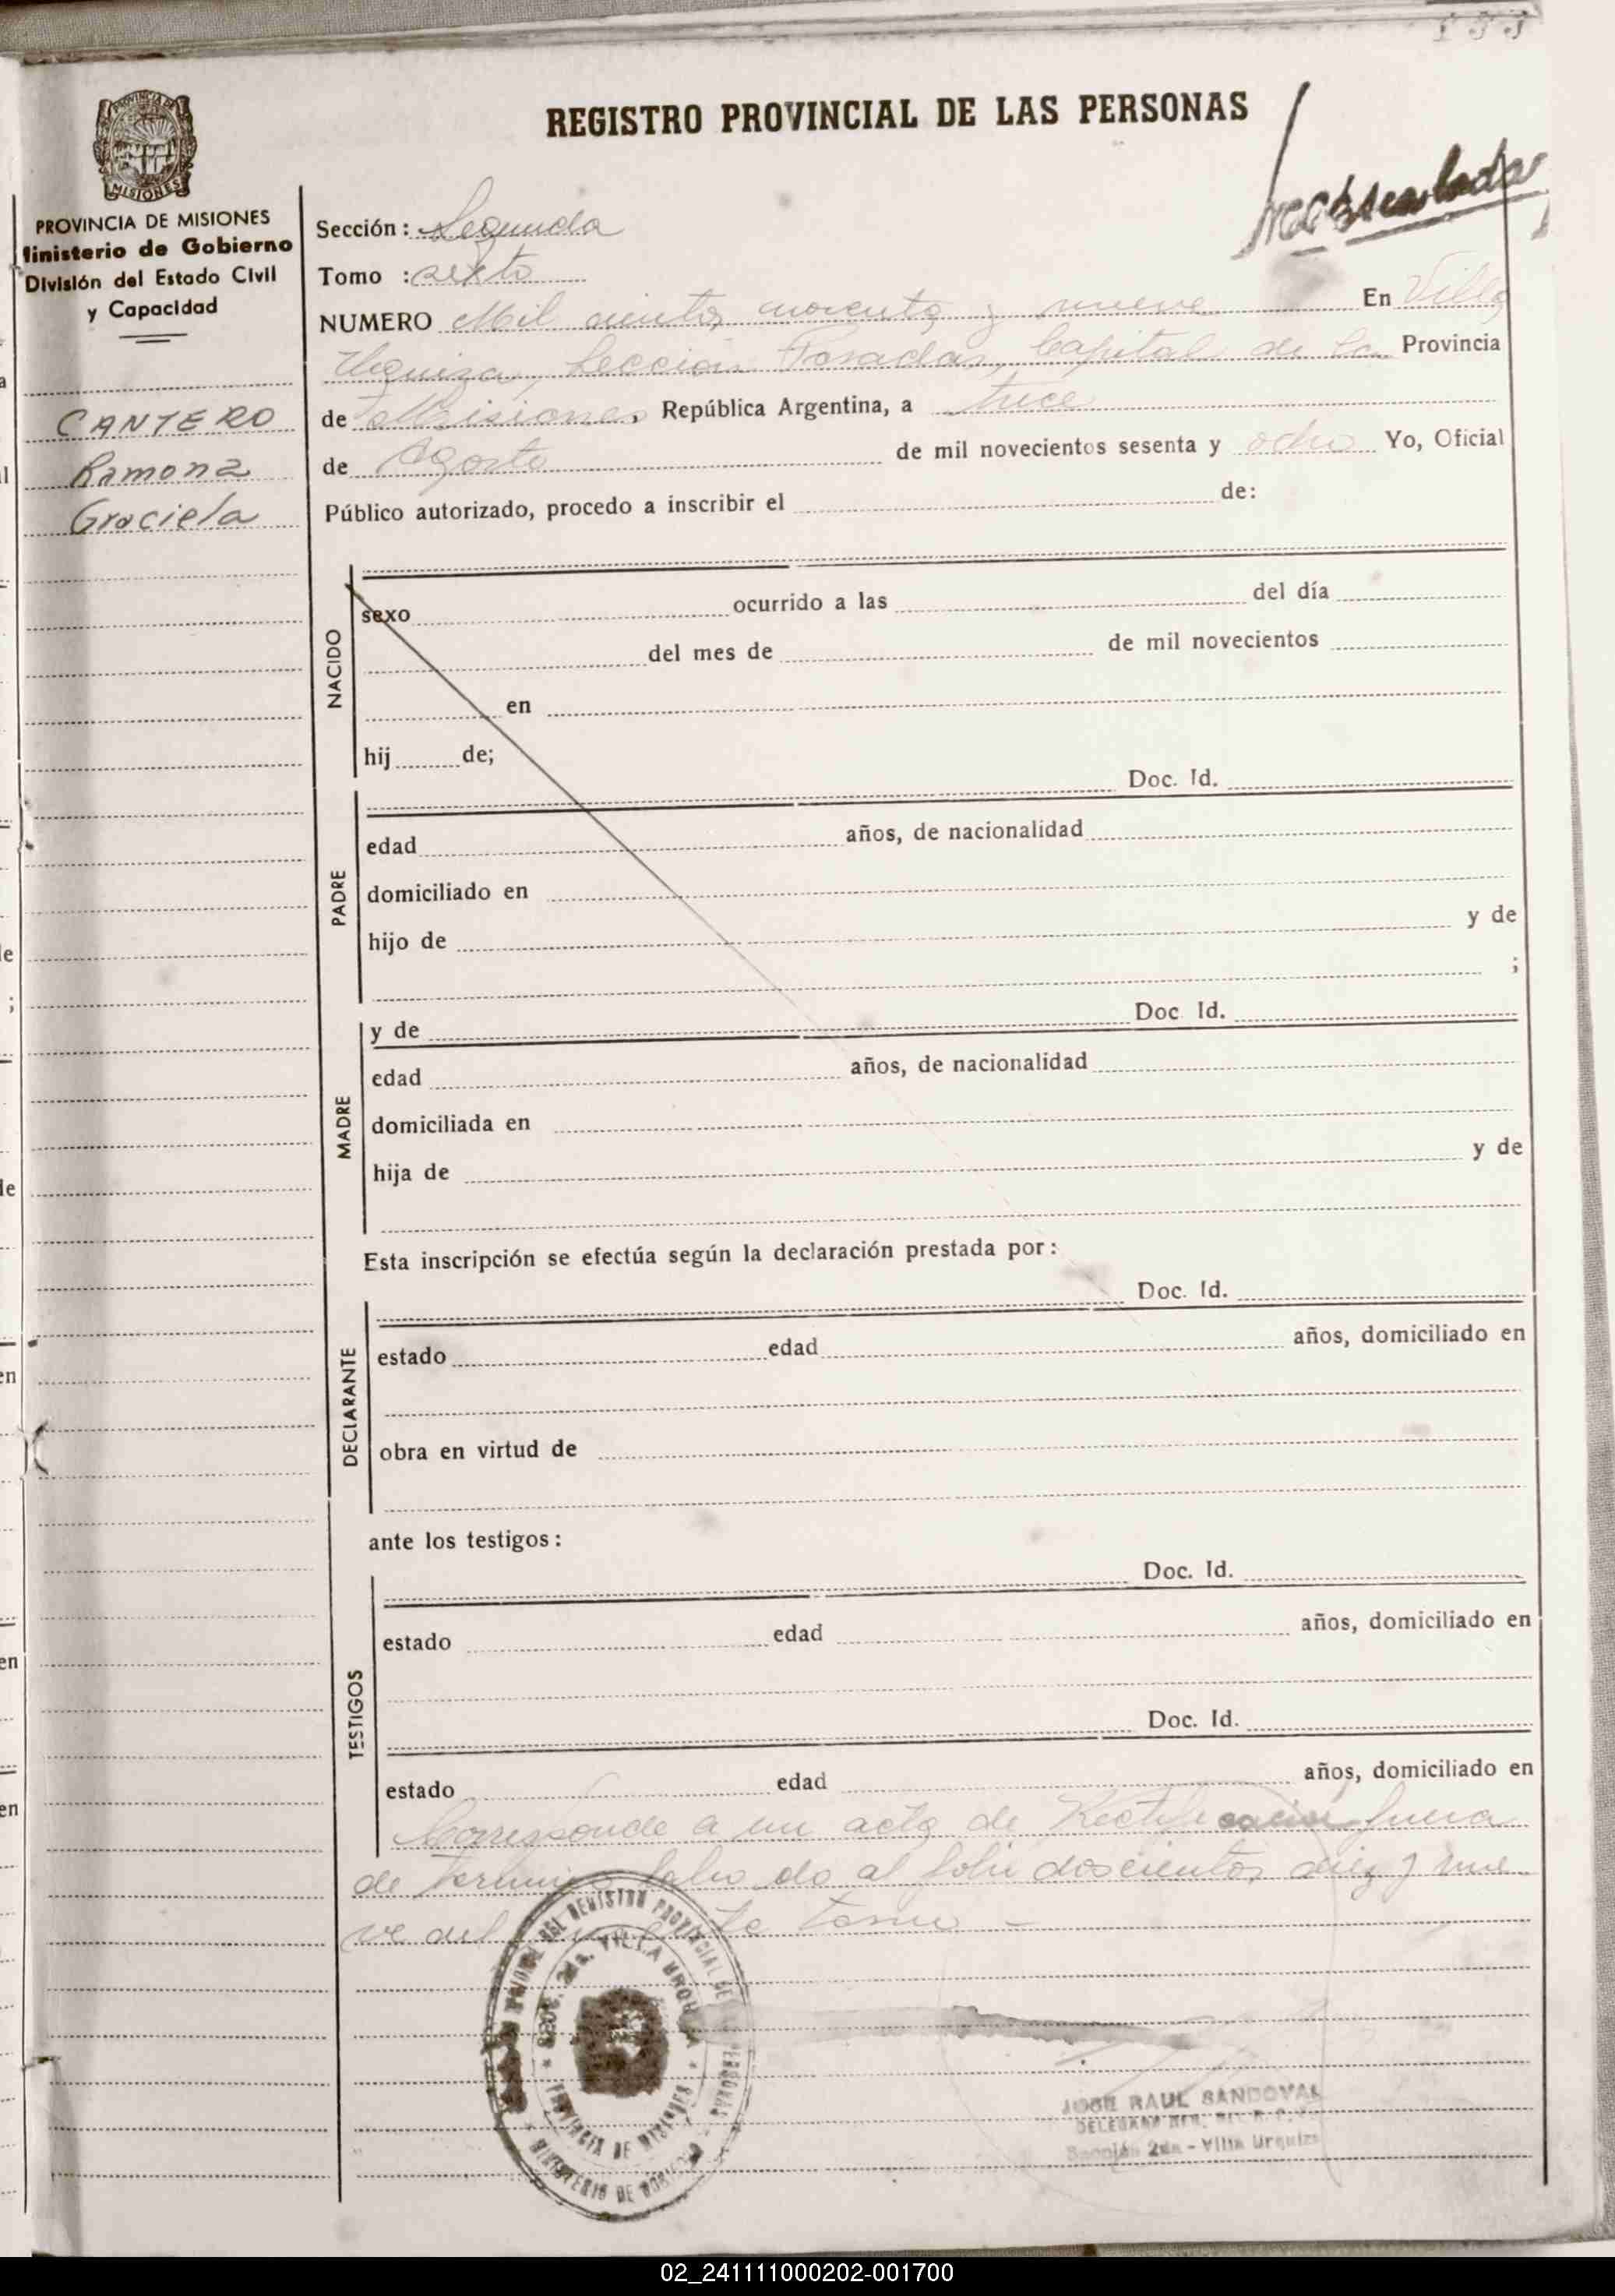 REGISTRO PROVINCIAL DE LAS PERSONAS
PROVINCIA DE MISIONES
Ministerio de Gobierno
División del Estado Civil
y Capacidad
CANTERO
Ramona
Graciela
Sección: Segunda
Tomo : sexto
NUMERO Mil ciento noventa y nueve En Villa
Urquiza, Sección Posadas, Capital de la Provincia
de Misiones, República Argentina, a trece
de Agosto de mil novecientos sesenta y ocho Yo, Oficial
Público autorizado, procedo a inscribir el de:
NACIDO
sexo ocurrido a las del día
del mes de de mil novecientos
en
hij de;
Doc. Id.
PADRE
edad años, de nacionalidad
domiciliado en
hijo de y de
;
MADRE
y de Doc Id.
edad años, de nacionalidad
domiciliada en
hija de y de
Esta inscripción se efectúa según la declaración prestada por:
DECLARANTE
Doc. Id.
estado edad años, domiciliado en
obra en virtud de
ante los testigos:
TESTIGOS
Doc. Id.
estado edad años, domiciliado en
Doc. Id.
estado edad años, domiciliado en
Corresponde a un acta de Rectificación fuera
de termino labrado al folio doscientos diez y nue
ve del tomo -
REGISTRO PROVINCIAL DE PERSONAS
SECC. 2da. VILLA URQUIZA
PROVINCIA DE MISIONES
MINISTERIO DE GOBIERNO
JOSE RAUL SANDOVAL
Sección 2da - Villa Urquiza
02_241111000202-001700